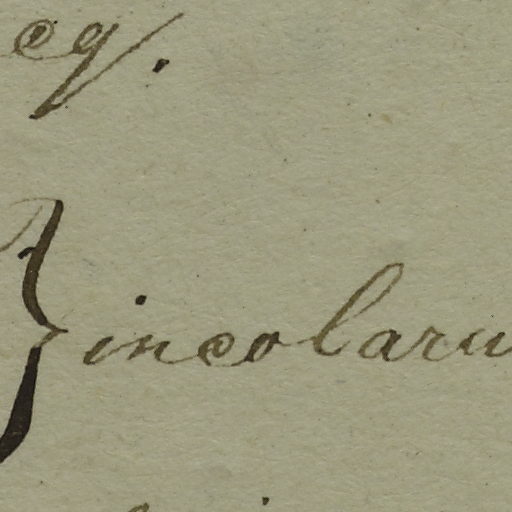 eq.
} incolaru